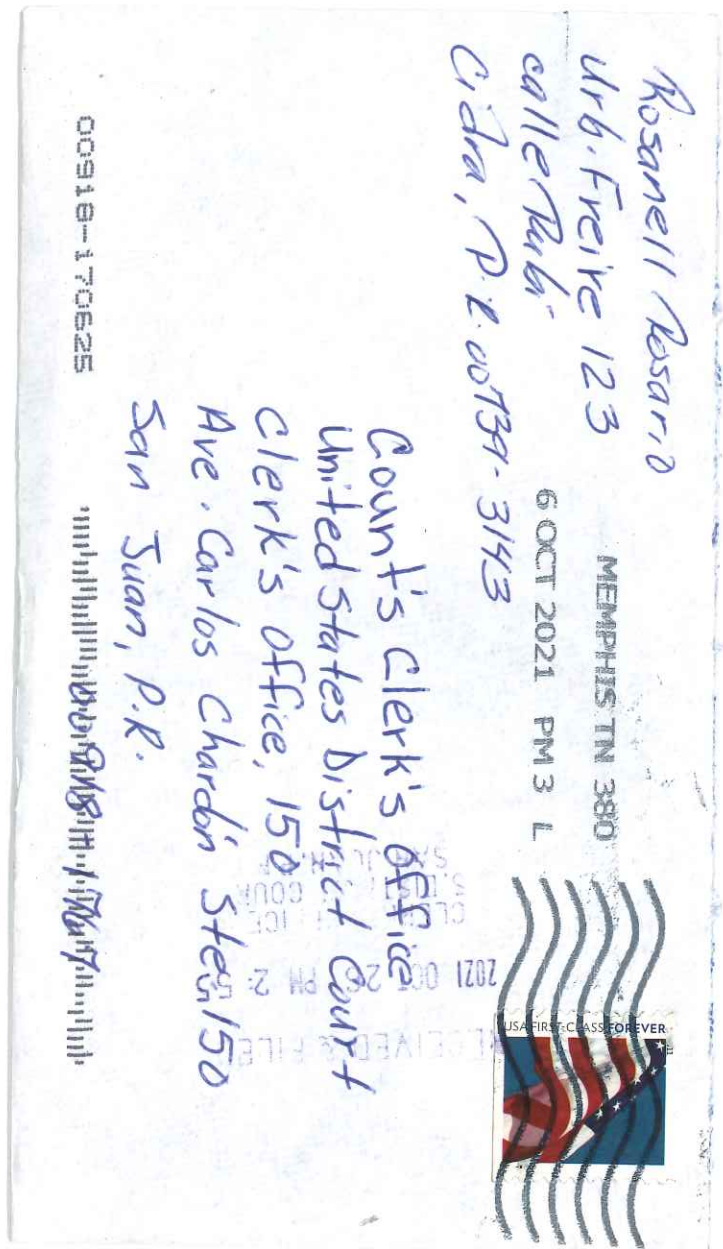 Rosanell Rosario
Urb. Freire 123
calle Rubi
Cidra, P.R. 00739-3143
MEMPHIS TN 380
6 OCT 2021 PM 3 L
USA FIRST-CLASS FOREVER
Count's Clerk's Office
United States District Court
Clerk's Office, 150
Ave. Carlos Chardón Ste. 150
San Juan, P.R.
RECEIVED & FILE
2021 OCT 26 PM 2:55
00918-170625